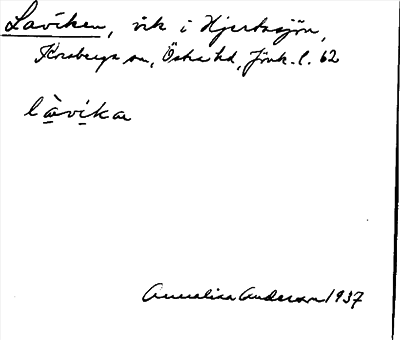 Laviken, vik i Hjertasjön,
Korsberga sn, Östra hd, Jönk. l. 62
làvi̱ka
Annalisa Anderson 1937